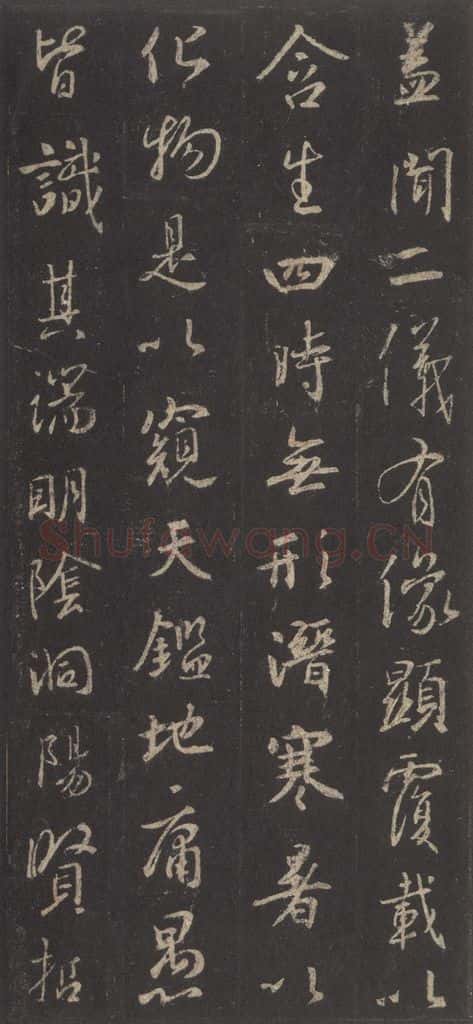 蓋聞二儀有像顯覆載以
含生四時無形潛寒暑以
化物是以窺天鑑地庸愚
皆識其端明陰洞陽賢哲
Shufawang.CN